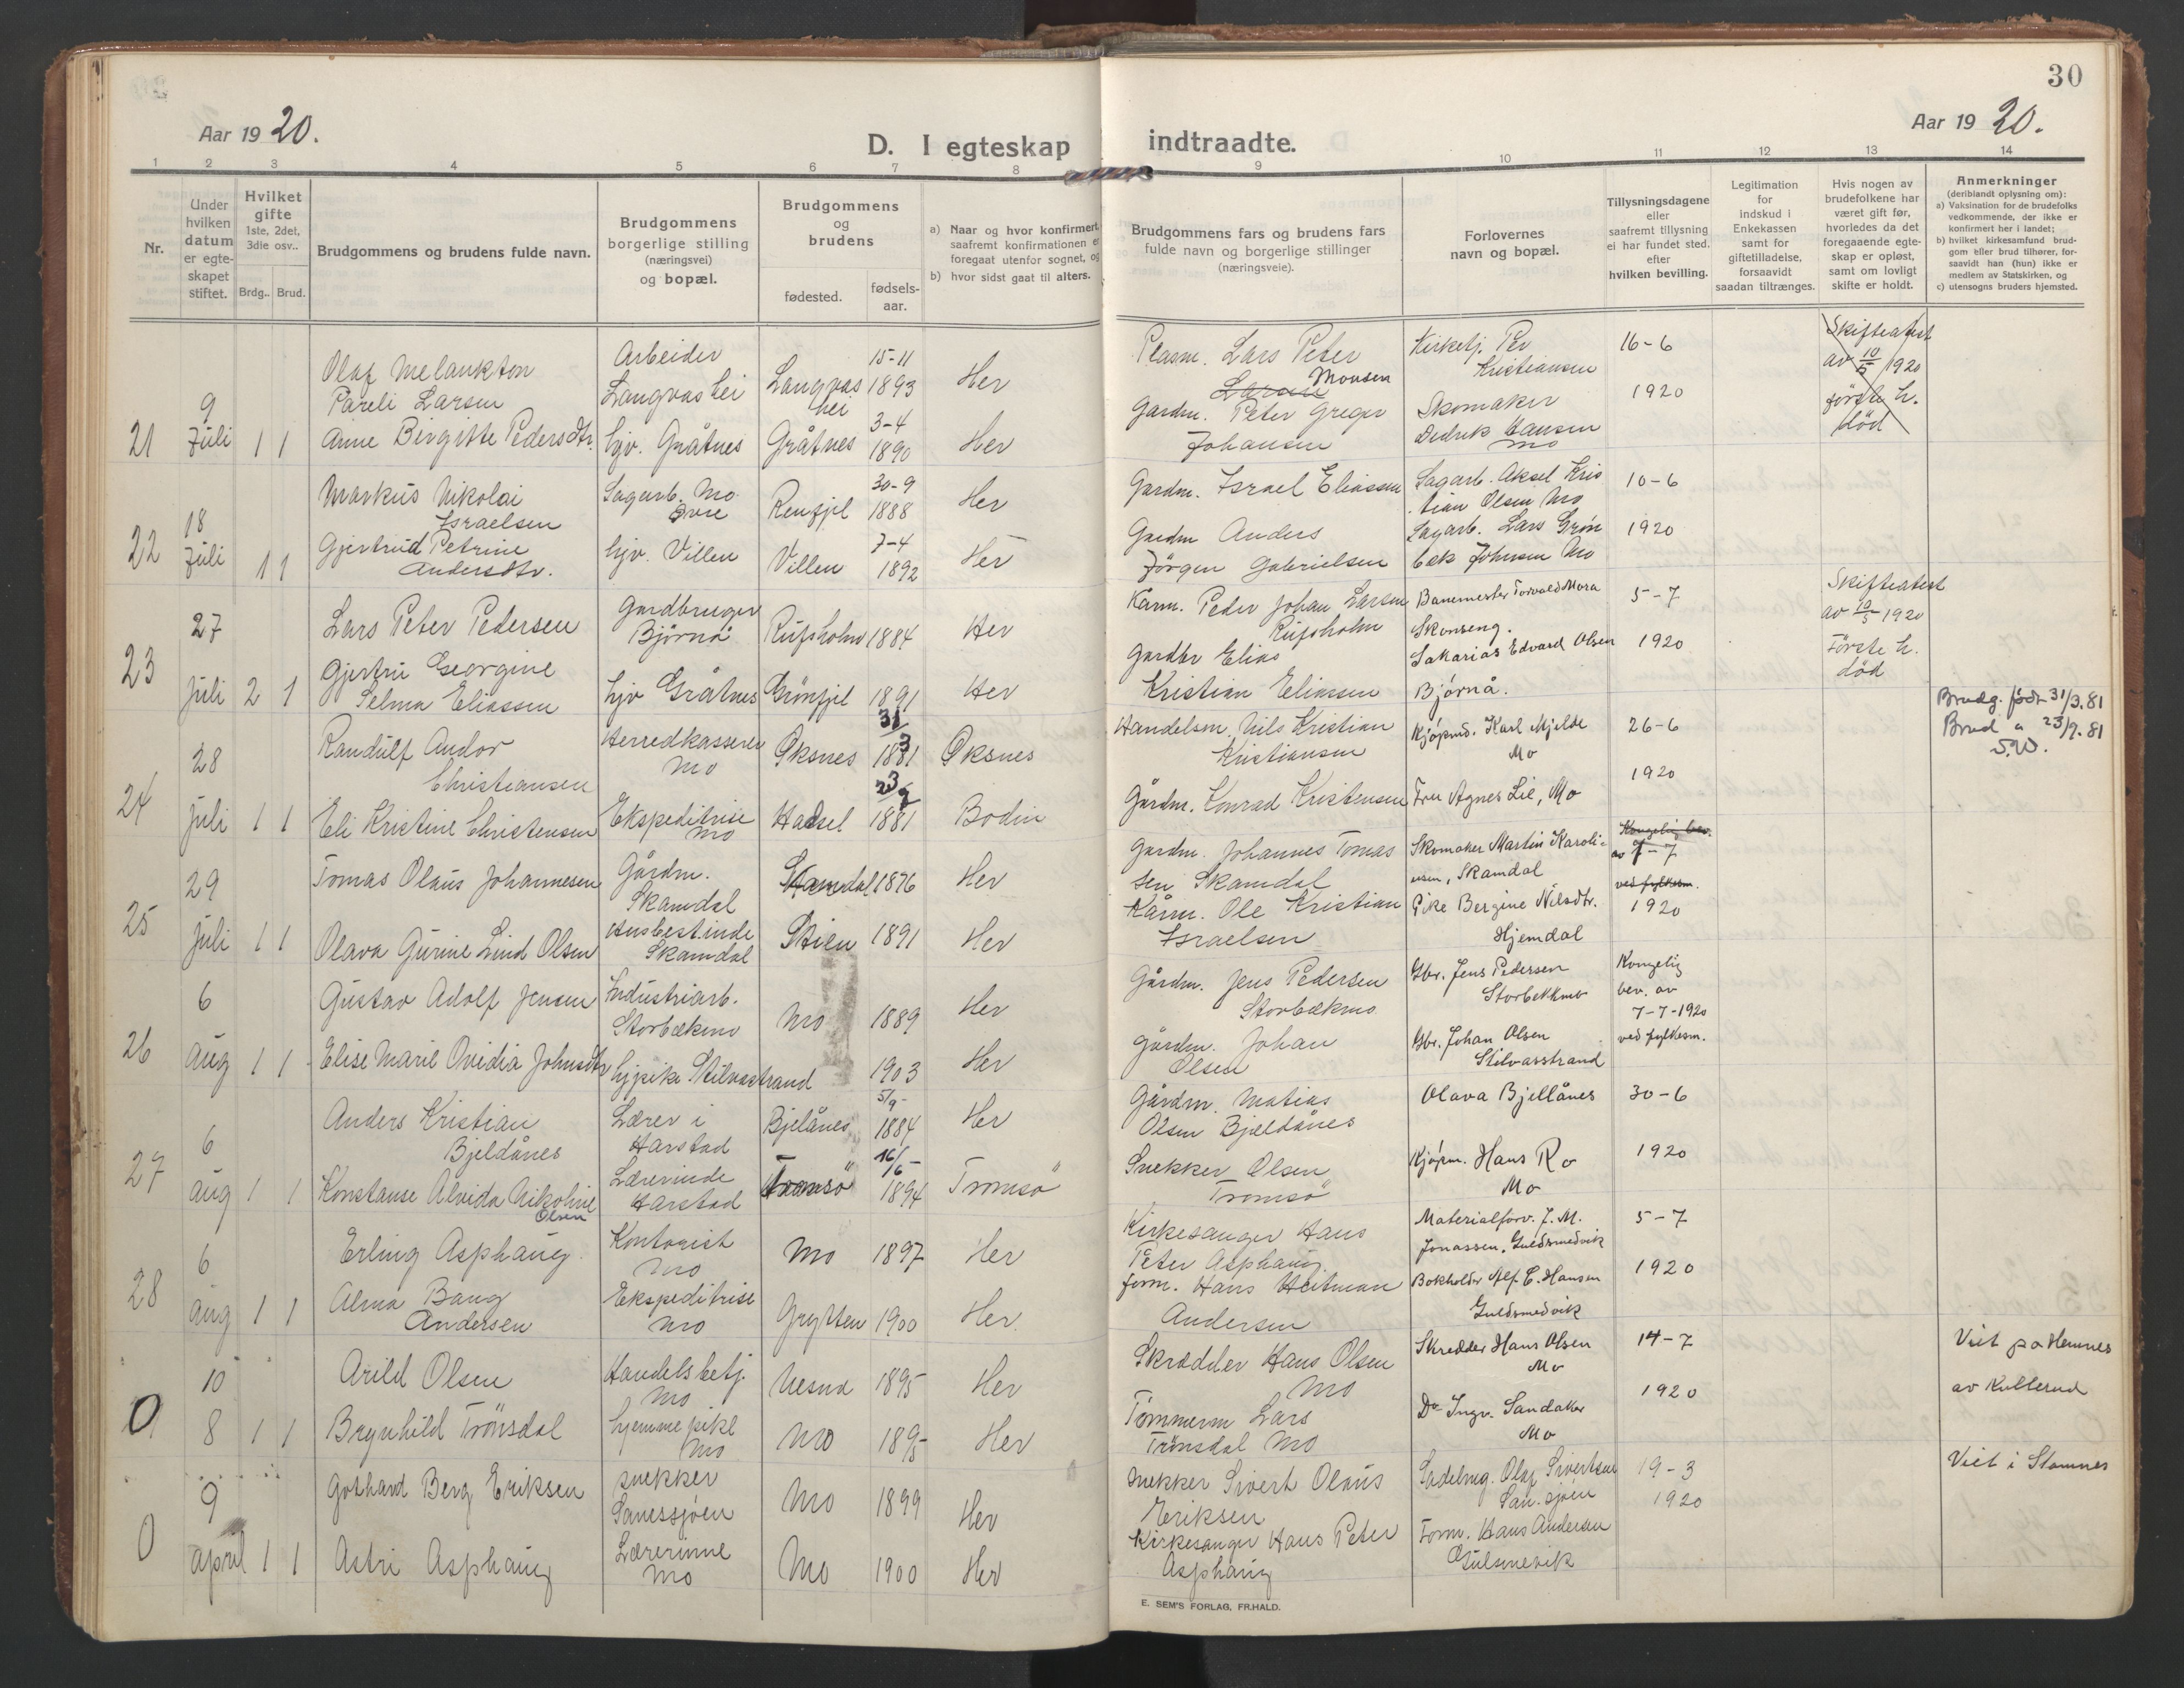 30
Aar 1920.
D. I egteskap
indtraadte.
Aar 1920.
1 2 3 4 5 6 7 8 9 10 11 12 13 14
Nr.
Under
hvilken
datum
er egte-
skapet
stiftet.
Hvilket
gifte
1ste, 2det,
3die osv..
Brdg..
Brud.
Brudgommens og brudens fulde navn.
Brudgommens
borgerlige stilling
(næringsvei)
og bopæl.
Brudgommens
og
brudens
fødested.
fødsels-
aar.
a) Naar og hvor konfirmert,
saafremt konfirmationen er
foregaat utenfor sognet, og
b) hvor sidst gaat til alters.
Brudgommens fars og brudens fars
fulde navn og borgerlige stillinger
(næringsveie).
Forlovernes
navn og bopæl.
Tillysningsdagene
eller
saafremt tillysning
ei har fundet sted,
efter
hvilken bevilling.
Legitimation
for
indskud i
Enkekassen
samt for
giftetilladelse,
forsaavidt
saadan tiltrænges.
Hvis nogen av
brudefolkene har
været gift før,
hvorledes da det
foregaaende egte-
skap er opløst,
samt om lovligt
skifte er holdt.
Anmerkninger
(deriblandt oplysning om):
a) Vaksination for de brudefolks
vedkommende, der ikke er
konfirmert her i landet;
b) hvilket kirkesamfund brud-
gom eller brud tilhører, for-
saavidt han (hun) ikke er
medlem av Statskirken, og
c) utensogns bruders hjemsted.
21
9
Juli
1 1
Olaf Melankton
Pareli Larsen
Anne Birgitte Pedersdtr.
Arbeider
Langvashei
hjv. Gråtnes
Langvas
hei
Gråtnes
15-11
1893
3-4
1890
Her
Her
Plasm. Lars Peter
Larsen Monsen
Gardm. Peter Greger
Johansen
Kirketj. Per
Kristiansen
Skomaker
Dedrik Hansen
Mo
16-6
1920
Skifteatest
av 10/5 1920
første h.
død
22
18
Juli
1 1
Markus Nikolai
Israelsen
Gjertrud Petrine
Andersdtr.
Sagarb. Mo
Øvre
hjv. Villen
Renfjel
Villen
30-9
1888
7-4
1892
Her
Her
Gardm. Israel Eliassen
Gardm Anders
Jørgen Gabrielsen
Sagarb. Aksel Kris
tian Olsen Mo
Sagarb. Lars Grøn
bek Johnsen Mo
10-6
1920
23
27
Juli
2 1
Lars Peter Pedersen
Gjertru Georgine
Selma Eliassen
Gardbruger
Bjørnå
hjv Gråtnes
Rufsholm
Grønfjel
1884
1891
Her
Her
Kårm. Peder Johan Larsen
Rufsholm
Gardbr Elias
Kristian Eliassen
Banemester Torvald Mora
Skonseng.
Sakarias Edvard Olsen
Bjørnå.
5-7
1920
Skifteatest
av 10/5 1920
Første h.
død
24
28
Juli
1 1
Randulf Andor
Christiansen
Eli Kristine Christensen
Herredkasserer
Mo
Ekspeditrise
Mo
Øksnes
Hadsel
31/3
1881
23/9
1881
Øksnes
Bodin
Handelsm. Nils Kristian
Kristiansen
Gårdm. Konrad Kristensen
Kjøpmd. Karl Mjelde
Mo
Fru Agnes Lie, Mo
26-6
1920
Brudg. født 31/3.81
Brud " 23/9.81
25
29
Juli
1 1
Tomas Olaus Johannesen
Olava Gurine Lind Olsen
Gårdm.
Skamdal
Husbestinde
Skamdal
Skamdal
Stien
1876
1891
Her
Her
Gardm. Johannes Tomas
sen Skamdal
Kårm. Ole Kristian
Israelsen
Skomaker Martin Karoli-
usen, Skamdal
Pike Bergine Nilsdtr.
Hjemdal
Kongelig bev.
av 7-7
ved fylkesm.
1920
26
6
aug
1 1
Gustav Adolf Jensen
Elise Marie Ovidia Johnsdtr
Industriarb.
Storbækmo
hjpike Stilvastrand
Mo
1889
1903
Her
Her
Gårdm. Jens Pedersen
Storbækmo
Gårdm. Johan
Olsen
Gbr. Jens Pedersen
Storbekkmo
Gbr. Johan Olsen
Stilvasstrand
Kongelig
bev. av
7-7-1920
ved fylkesm.
27
6
aug
1 1
Anders Kristian
Bjeldånes
Konstanse Alvida Nikoline
Olsen
Lærer i
Harstad
Lærerinde
Harstad
Bjelånes
Tromsö
5/9-
1884
16/6-
1894
Her
Tromsö
Gårdm. Matias
Olsen Bjeldånes
Snekker Olsen
Tromsö
Olava Bjellånes
Kjøpm. Hans Ro
Mo
30-6
1920
28
6
aug
1 1
Erling Asphaug
Alma Bang
Andersen
Kontorist
Mo
Ekspeditrise
Mo
Mo
Grytten
1897
1900
Her
Her.
Kirkesanger Hans
Peter Asphaug
form. Hans Heitman
Andersen
Materialforv. J. M.
Jonassen, Guldsmedvik
Bokholder Alf. C. Hansen
Guldsmedvik
5-7
1920
0
10
8
1 1
Arild Olsen
Brynhild Trönsdal
Handelsbetj.
Mo
hjemmepike
Mo
Nesna
Mo
1895
1895
Her
Her
Skrædder Hans Olsen
Mo
Tømmerm Lars
Trönsdal Mo
Skredder Hans Olsen
Mo
Dr Ingv. Sandaker
Mo
14-7
1920
Viet på Hemnes
av Kullerud
0
9
april
1 1
Gothard Berg Eriksen
Astri Asphaug
snekker
Sanessjøen
Lærerinne
Mo
Mo
Mo
1899
1900
Her
Her
snekker Sivert Olaus
Eriksen
Kirkesanger Hans Peter
Asphaug
Sadelmg. Olaf Sivertsen
San.sjøen
Form. Hans Andersen
Gulsmevik
19-3
1920
Viet i Stamnes
E. SEM'S FORLAG, FR.HALD.